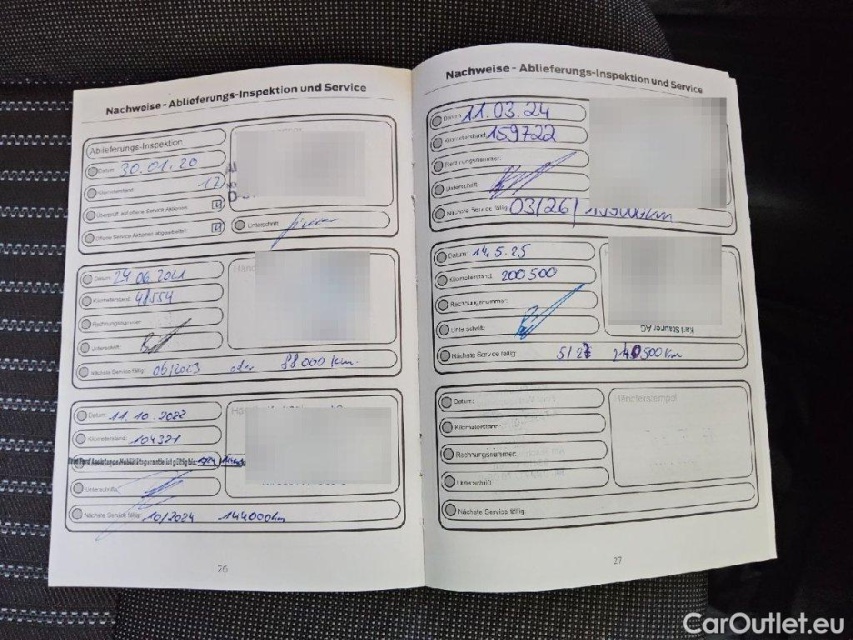 Nachweise - Ablieferungs-Inspektion und Service
Ablieferungs-Inspektion
Datum: 30.01.20
Kilometerstand: 12
Überprüft auf offene Service Aktionen
Offene Service Aktionen abgearbeitet
Unterschrift:
Datum: 24.06.2021
Kilometerstand: 48554
Rechnungsnummer:
Unterschrift:
Nächste Service fällig: 06/2023 oder 88000 km
Datum: 11.10.2022
Kilometerstand: 104321
Unterschrift:
Nächste Service fällig: 10/2024 144000km
26
Nachweise - Ablieferungs-Inspektion und Service
Datum: 11.03.24
Kilometerstand: 159722
Rechnungsnummer:
Unterschrift:
Nächste Service fällig: 03/26/
Datum: 14.5.25
Kilometerstand: 200500
Rechnungsnummer:
Unterschrift:
Karl Stauner AG
Nächste Service fällig: 5/27 240500km
Datum:
Kilometerstand:
Rechnungsnummer:
Unterschrift:
Händlerstempel
Nächste Service fällig:
27
CarOutlet.eu